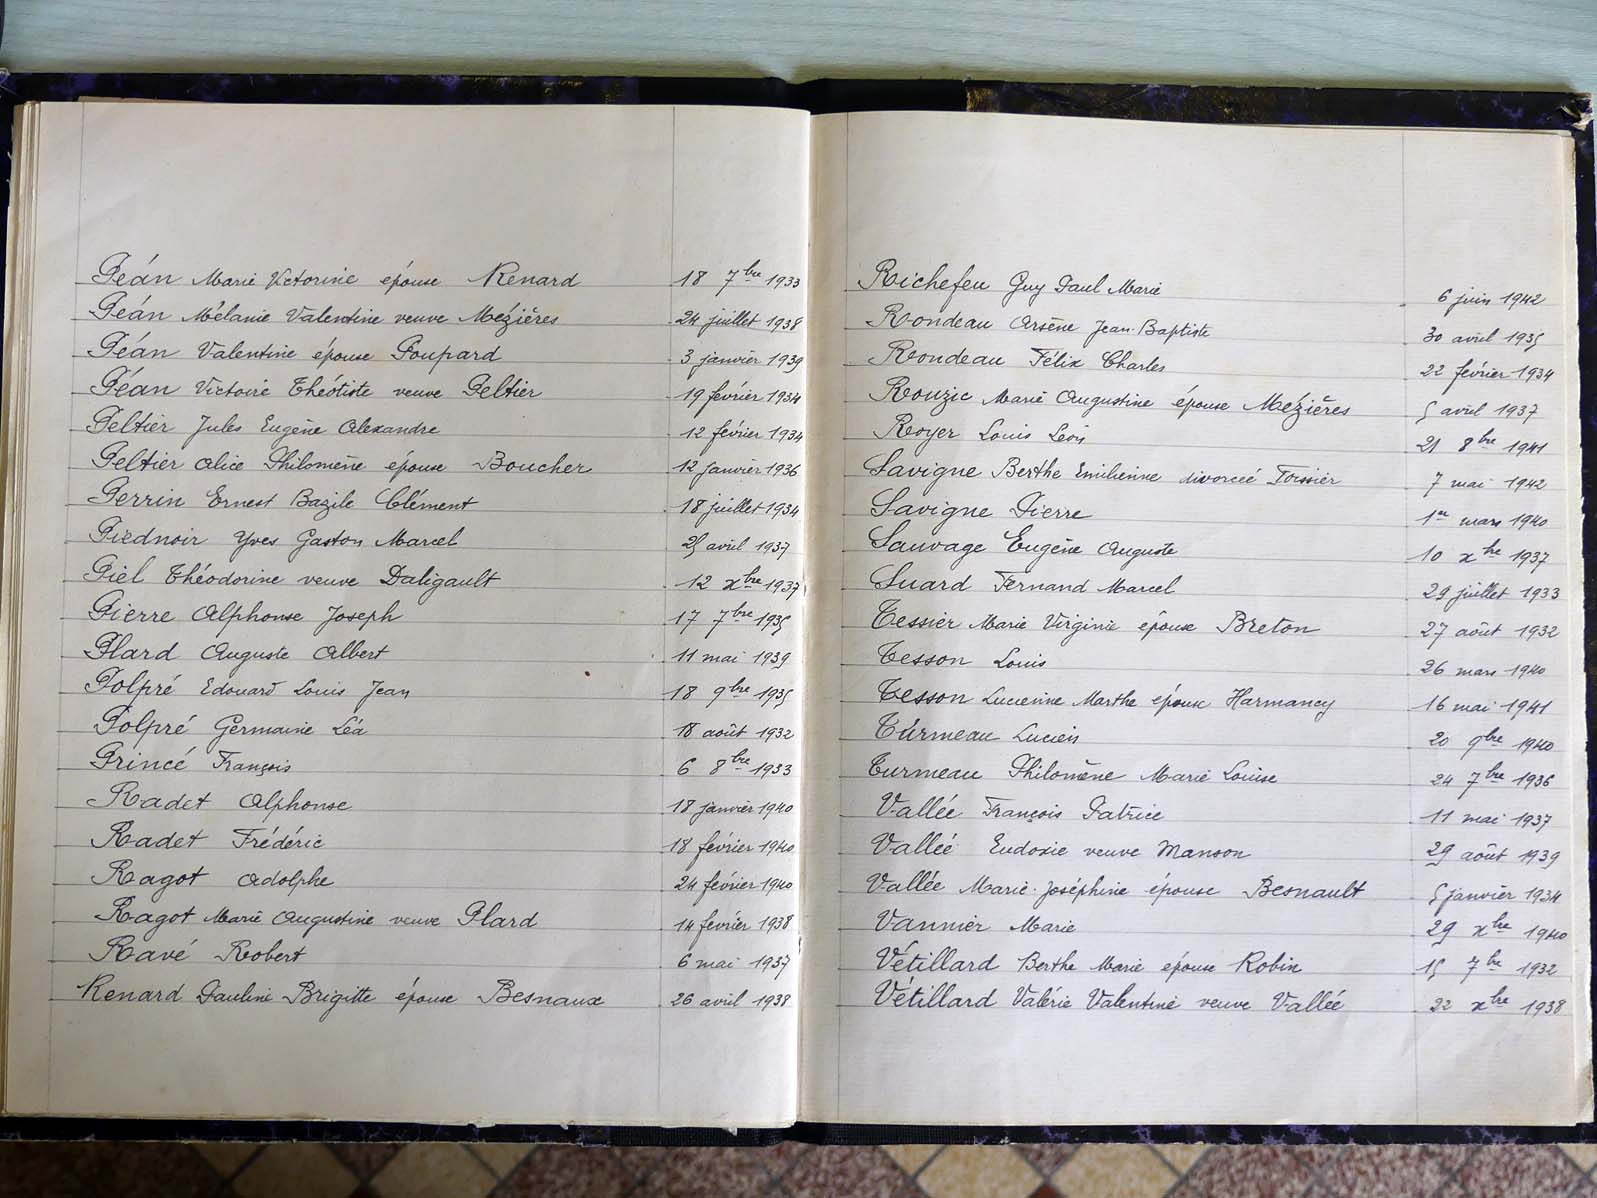 Péan Marie Victorine épouse Renard 18 7bre 1933
Péan Mélanie Valentine veuve Mézières 24 juillet 1938
Péan Valentine épouse Poupard 3 janvier 1939
Péan Victoire Théotiste veuve Peltier 19 février 1934
Peltier Jules Eugène Alexandre 12 février 1934
Peltier Alice Philomène épouse Boucher 12 janvier 1936
Perrin Ernest Bazile Clément 18 juillet 1934
Piednoir Yves Gaston Marcel 25 avril 1937
Piel Théodorine veuve Daligault 12 xbre 1937
Pierre Alphonse Joseph 17 7bre 1935
Plard Auguste Albert 11 mai 1939
Polpré Edouard Louis Jean 18 9bre 1935
Polpré Germaine Léa 18 août 1932
Princé François 6 8bre 1933
Radet Alphonse 18 janvier 1940
Radet Frédéric 18 février 1940
Ragot Adolphe 24 février 1940
Ragot Marie Augustine veuve Plard 14 février 1938
Ravé Robert 6 mai 1937
Renard Pauline Brigitte épouse Besnaux 26 avril 1938
Richefeu Guy Paul Marie 6 juin 1942
Rondeau Arsène Jean-Baptiste 30 avril 1935
Rondeau Félix Charles 22 février 1934
Rouzic Marie Augustine épouse Mézières 5 avril 1937
Royer Louis Léon 21 8bre 1941
Savigne Berthe Emilienne divorcée Toissier 7 mai 1942
Savigne Pierre 1er mars 1940
Sauvage Eugène Auguste 10 xbre 1937
Suard Fernand Marcel 29 juillet 1933
Tessier Marie Virginie épouse Breton 27 août 1932
Tesson Louis 26 mars 1940
Tesson Lucienne Marthe épouse Harmancy 16 mai 1941
Turmeau Lucien 20 9bre 1940
Turmeau Philomène Marie Louise 24 7bre 1936
Vallée François Patrice 11 mai 1937
Vallée Eudoxie veuve Manson 29 août 1939
Vallée Marie-Joséphine épouse Besnault 5 janvier 1934
Vannier Marie 29 xbre 1940
Vétillard Berthe Marie épouse Robin 15 7bre 1932
Vétillard Valérie Valentine veuve Vallée 22 xbre 1938